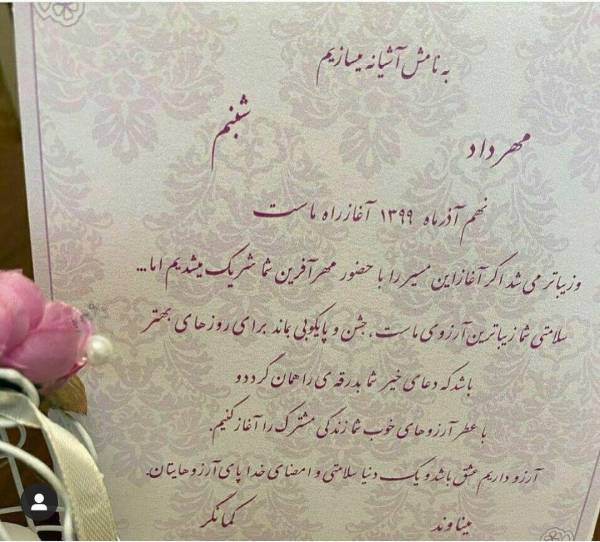 به نامش آشیانه میسازیم
شبنم
مهرداد
نهم آذرماه ۱۳۹۹ آغاز راه ماست
وزیباتر می شد اگر آغاز این مسیر را با حضور مهرآفرین شما شریک میشدیم اما...
سلامتی شما زیباترین آرزوی ماست، جشن و پایکوبی بماند برای روزهای بهتر
باشد که دعای خیر شما بدرقه ی راهمان گردد و
با عطر آرزوهای خوب شما زندگی مشترک را آغاز کنیم.
آرزو داریم عشق باشد و یک دنیا سلامتی و امضای خدا پای آرزوهایتان.
میناوند
کمانگر